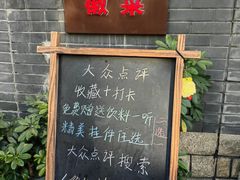 徽菜
大众点评
收藏+打卡
免费赠送饮料一听
精美挂件任选
二选一
大众点评搜索